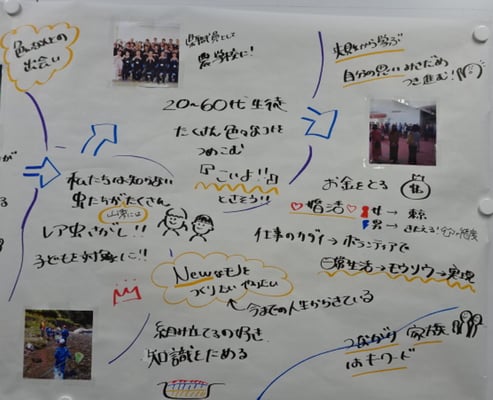 出会い
農職員として
農学校に!
20~60代生徒
たくさん色々なコトを
つめこむ
『こいよ!!』
私たちは知らない
虫たちがたくさん
山菜には
レア虫さがし!!
子どもを対象に!!
Newなモノを
つくりたい やりたい
今までの人生からきている
組み立てるの好き
知識をためる
から学ぶ
自分の思い
つき進む!
お金をとる
♡婚活♡
女→東京
男→
仕事のカタイ→ボランティアで
日常生活→モウソウ→実現
つながり 家族
はキーワード